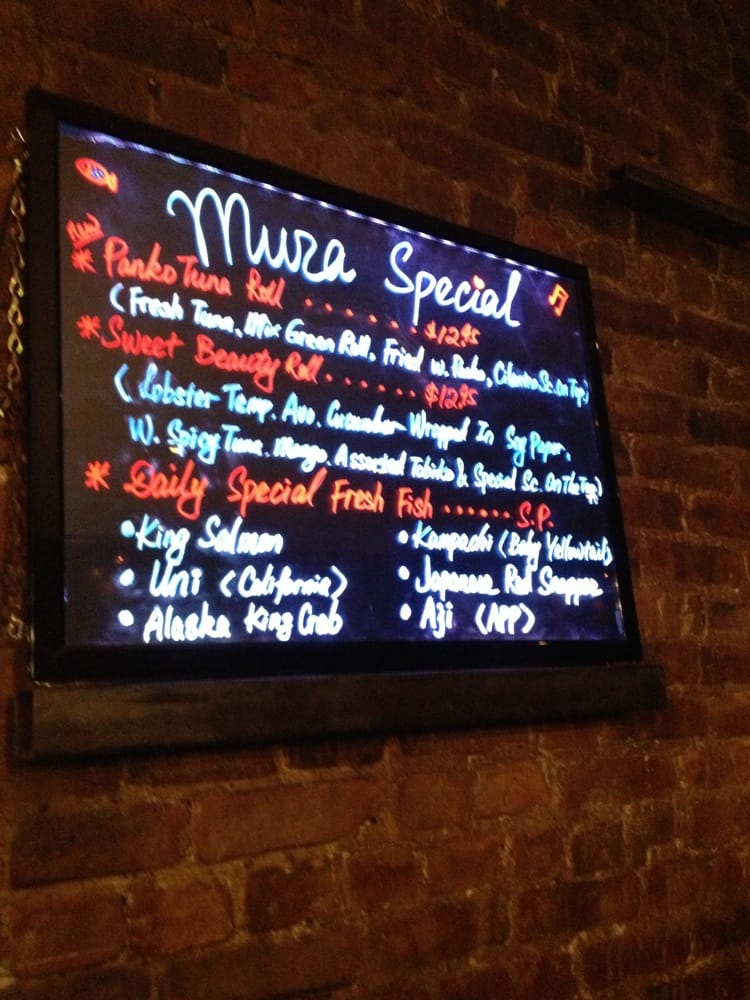 Mura Special
New
* Panko Tuna Roll ........ $12.95
(Fresh Tuna, Mix Green Roll, Fried w. Panko, Cilantro Sc. On Top)
* Sweet Beauty Roll....... $12.95
(Lobster Temp. Avo. Cucumber Wrapped In Soy Paper,
W. Spicy Tuna. Mango. Assorted Tobiko & Special Sc. On The Top)
* Daily Special Fresh Fish ...... S.P.
• King Salmon
• Uni (California)
• Alaska King Crab
• Kampachi (Baby Yellowtail)
• Japanese Red Snapper
• Aji (APP)